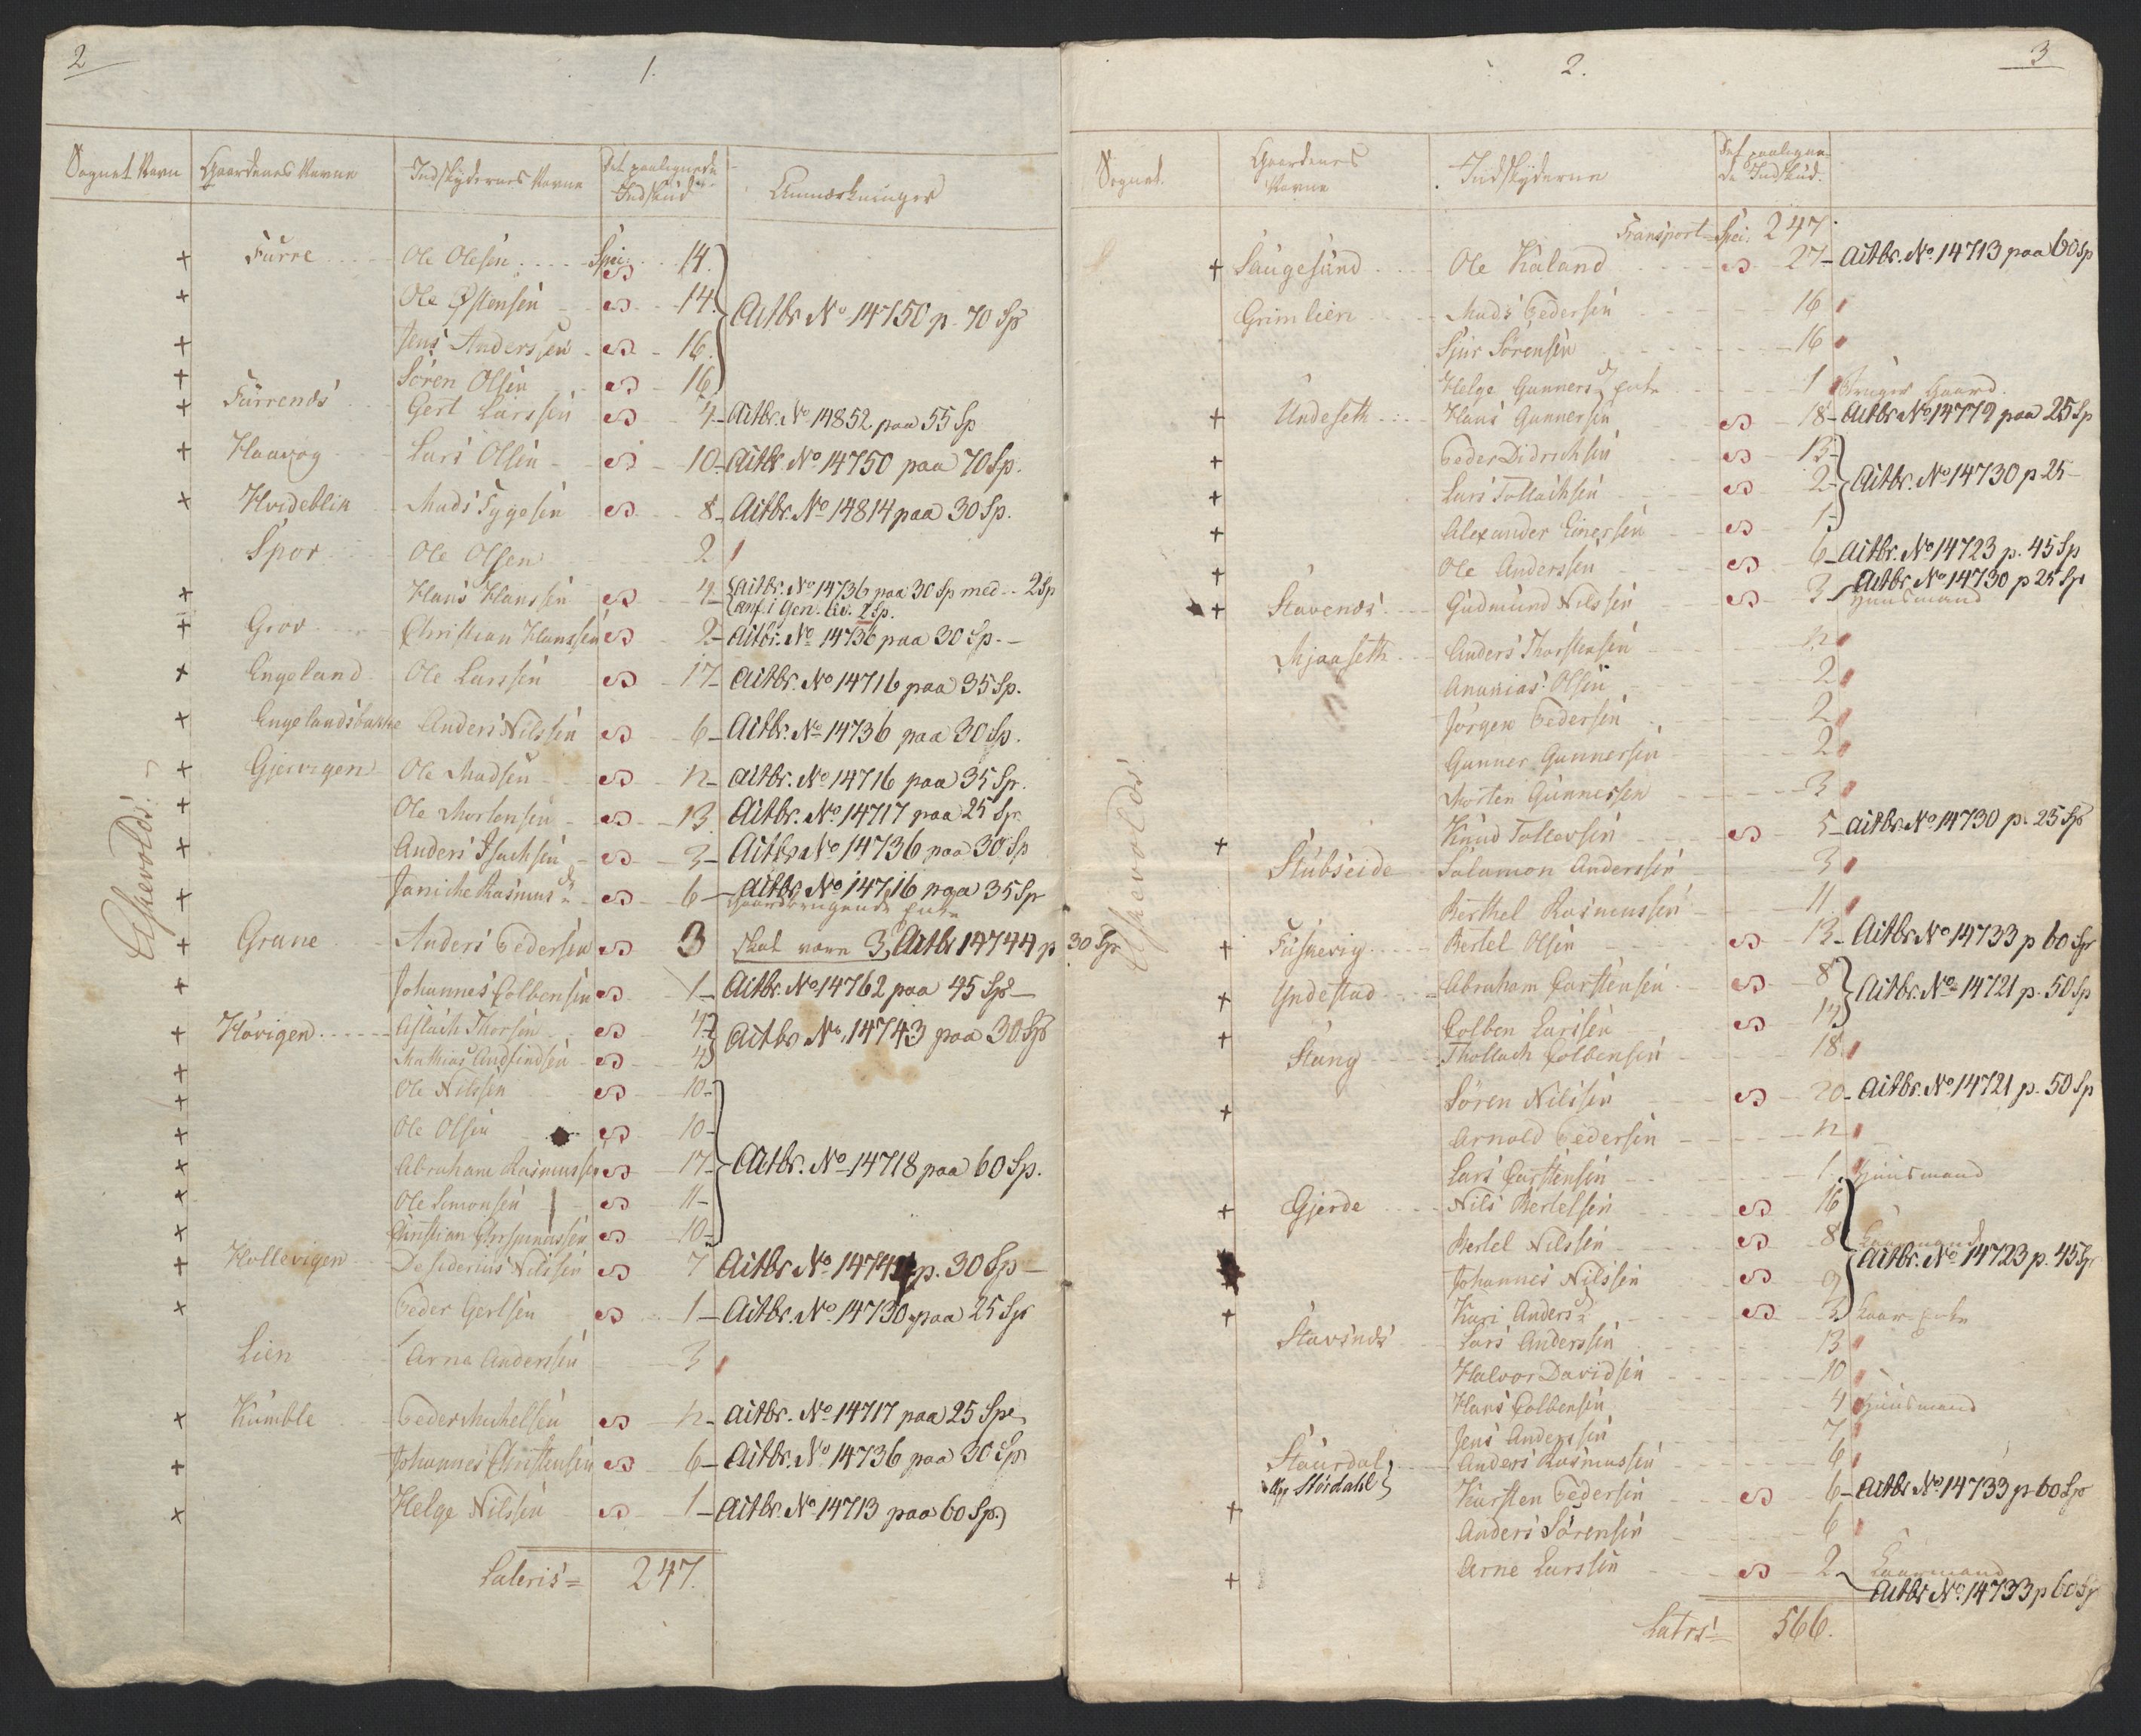 2
1.
Sognet Navn Gaardenes Navne Indskydernes Navne Det paalignede Indskud Anmærkninger
Askevolds
+ Furre Ole Olesen Spe: 14.
+ Ole Østensen 14. Actbr No 14750 p. 70 Sp
+ Jens Anderssen 16.
+ Sören Olsen 16
+ Furrenæs Gert Larssen 4 Actbr. No 14852 paa 55 Sp
+ Haavog Lars Olsen 10 Actbr. No 14750 paa 70 Sp.
+ Hvideblik Mads Tygesen 8 Actbr. No 14814 paa 30 Sp.
Spor Ole Olsen 2
+ Hans Hanssen 4 Actbr. No 14736 paa 30 Sp med 2 Sp
anf. i Gen. Liv. 2 Sp.
+ Grov Christian Hanssen 2 Actbr. No 14736 paa 30 Sp.
+ Engeland Ole Larssen 17 Actbr. No 14716 paa 35 Sp.
+ Engelandsbakke Anders Nilssen 6 Actbr. No 14736 paa 30 Sp.
+ Gjervigen Ole Madsen 12 Actbr. No 14716 paa 35 Sp.
+ Ole Mortensen 13 Actbr. No 14717 paa 25 Sp.
+ Anders Isachsen 3 Actbr No 14736 paa 30 Sp
+ Janiche Rasmusdr 6 Actbr. No 14716 paa 35 Sp
Gaardbrugende Enke
+ Grane Anders Pedersen 3 skal være 3, Actbr 14744 p 30 Sp
+ Johannes Colbensen 1 Actbr. No 14762 paa 45 Sp
+ Hövigen Aslach Thorsen 4 Actbr No. 14743 paa 30 Sp
+ Mathias Andfindsen 4
+ Ole Nilssen 10
+ Ole Olsen 10
+ Abraham Rasmussen 17 Actbr. No 14718 paa 60 Sp.
+ Ole Simonsen 11
+ Christian 10
+ Hollevigen Desiderius Nilssen 7 Actbr No 14744 p. 30 Sp
+ Peder Gertsen 1 Actbr. No 14730 paa 25 Sp
Lien Arne Anderssen 3
+ Kumble Peder Michelsen 12 Actbr. No 14717 paa 25 Spe
+ Johannes Christensen 6 Actbr. No 14736 paa 30 Sp
+ Helge Nilssen 1 Actbr. No 14713 paa 60 Sp.
Lateris 247.
3
2.
Sognet. Gaardenes Navne Indskyderne Det paaligne-
de Indskud.
Askevolds
Transport Spei. 247.
+ Saugesund Ole Kaland 27 Actbr. No 14713 paa 60 Sp
Grimlien Mads Pedersen 16
Siur Sörensen 16
Helge Gunnersdr Enke 1 bruger Gaard.
+ Undeseth Hans Gunnersen 18 Actbr No 14779 paa 25 Sp
+ Peder Didrichsen 13
+ Lars Tollachsen 2 Actbr. No 14730 p 25
+ Alexander Einersen 1
+ Ole Anderssen 6 Actbr. No 14723 p. 45 Sp
+ Stavenæs Gudmund Nilssen 3 Actbr No 14730 p 25 Sp
Huusmand
Mjaaseth Anders Thorstensen 12
Ananias Olsen 2
Jörgen Pedersen 2
Gunner Gunnersen 2
Morten Gunnersen 3
+ Knud Tollevsen 5 Actbr No 14730 p. 25 Sp
Stubseide Salamon Anderssen 3
Berthel Rasmussen 11
+ Fuskevig Bertel Olsen 13 Actbr No 14733 p 60 Sp
+ Yndestad Abraham Carstensen 8 Actbr. No 14721 p. 50 Sp
+ Colben Larssen
Stang Thollach Colbensen 18
+ Sören Nilssen 20 Actbr. No 14721 p. 50 Sp
Arnold Pedersen 12
Lars Carstensen 1 Huusmand
+ Gjerde Nils Bertelsen 16
Bertel Nilssen 8 Kaarmand
Johannes Nilssen 9 Actbr. No 14723 p. 45 Sp
+ Kari Andersdr 3 Kaar-Enke
Stavsnæs Lars Anderssen 13
Halvor Davidsen 10
Hans Colbensen 4 Huusmand
Jens Anderssen 7
Staurdal Anders Rasmussen 6
Stordahl
+ Karsten Pedersen 6 Actbr No 14733 p 60 Sp
Anders Sörensen 6
+ Arne Larssen 2 Kaarmand
Actbr No. 14733 p 60 Sp
Latrs 566.